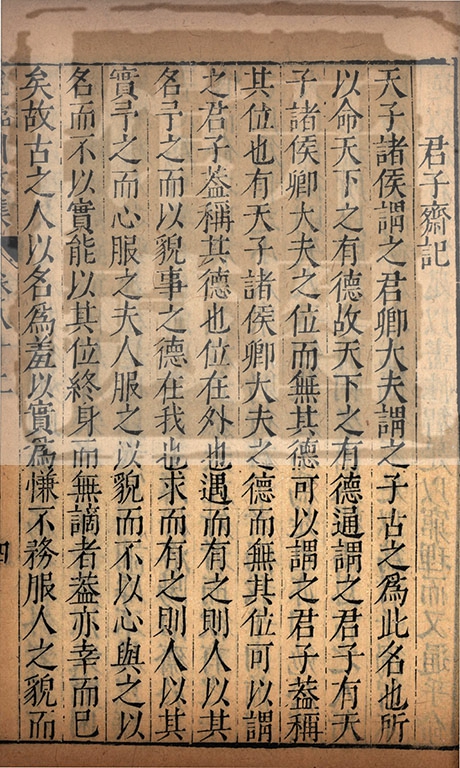 君子齋記
天子諸侯謂之君卿大夫謂之子古之爲此名也所
以命天下之有德故天下之有德通謂之君子有天
子諸侯卿大夫之位而無其德可以謂之君子葢稱
其位也有天子諸侯卿大夫之德而無其位可以謂
之君子葢稱其德也位在外也遇而有之則人以其
名予之而以貌事之德在我也求而有之則人以其
實予之而心服之夫人服之以貌而不以心與之以
名而不以實能以其位終身而無謫者葢亦幸而已
矣故古之人以名爲羞以實爲慊不務服人之貌而
四